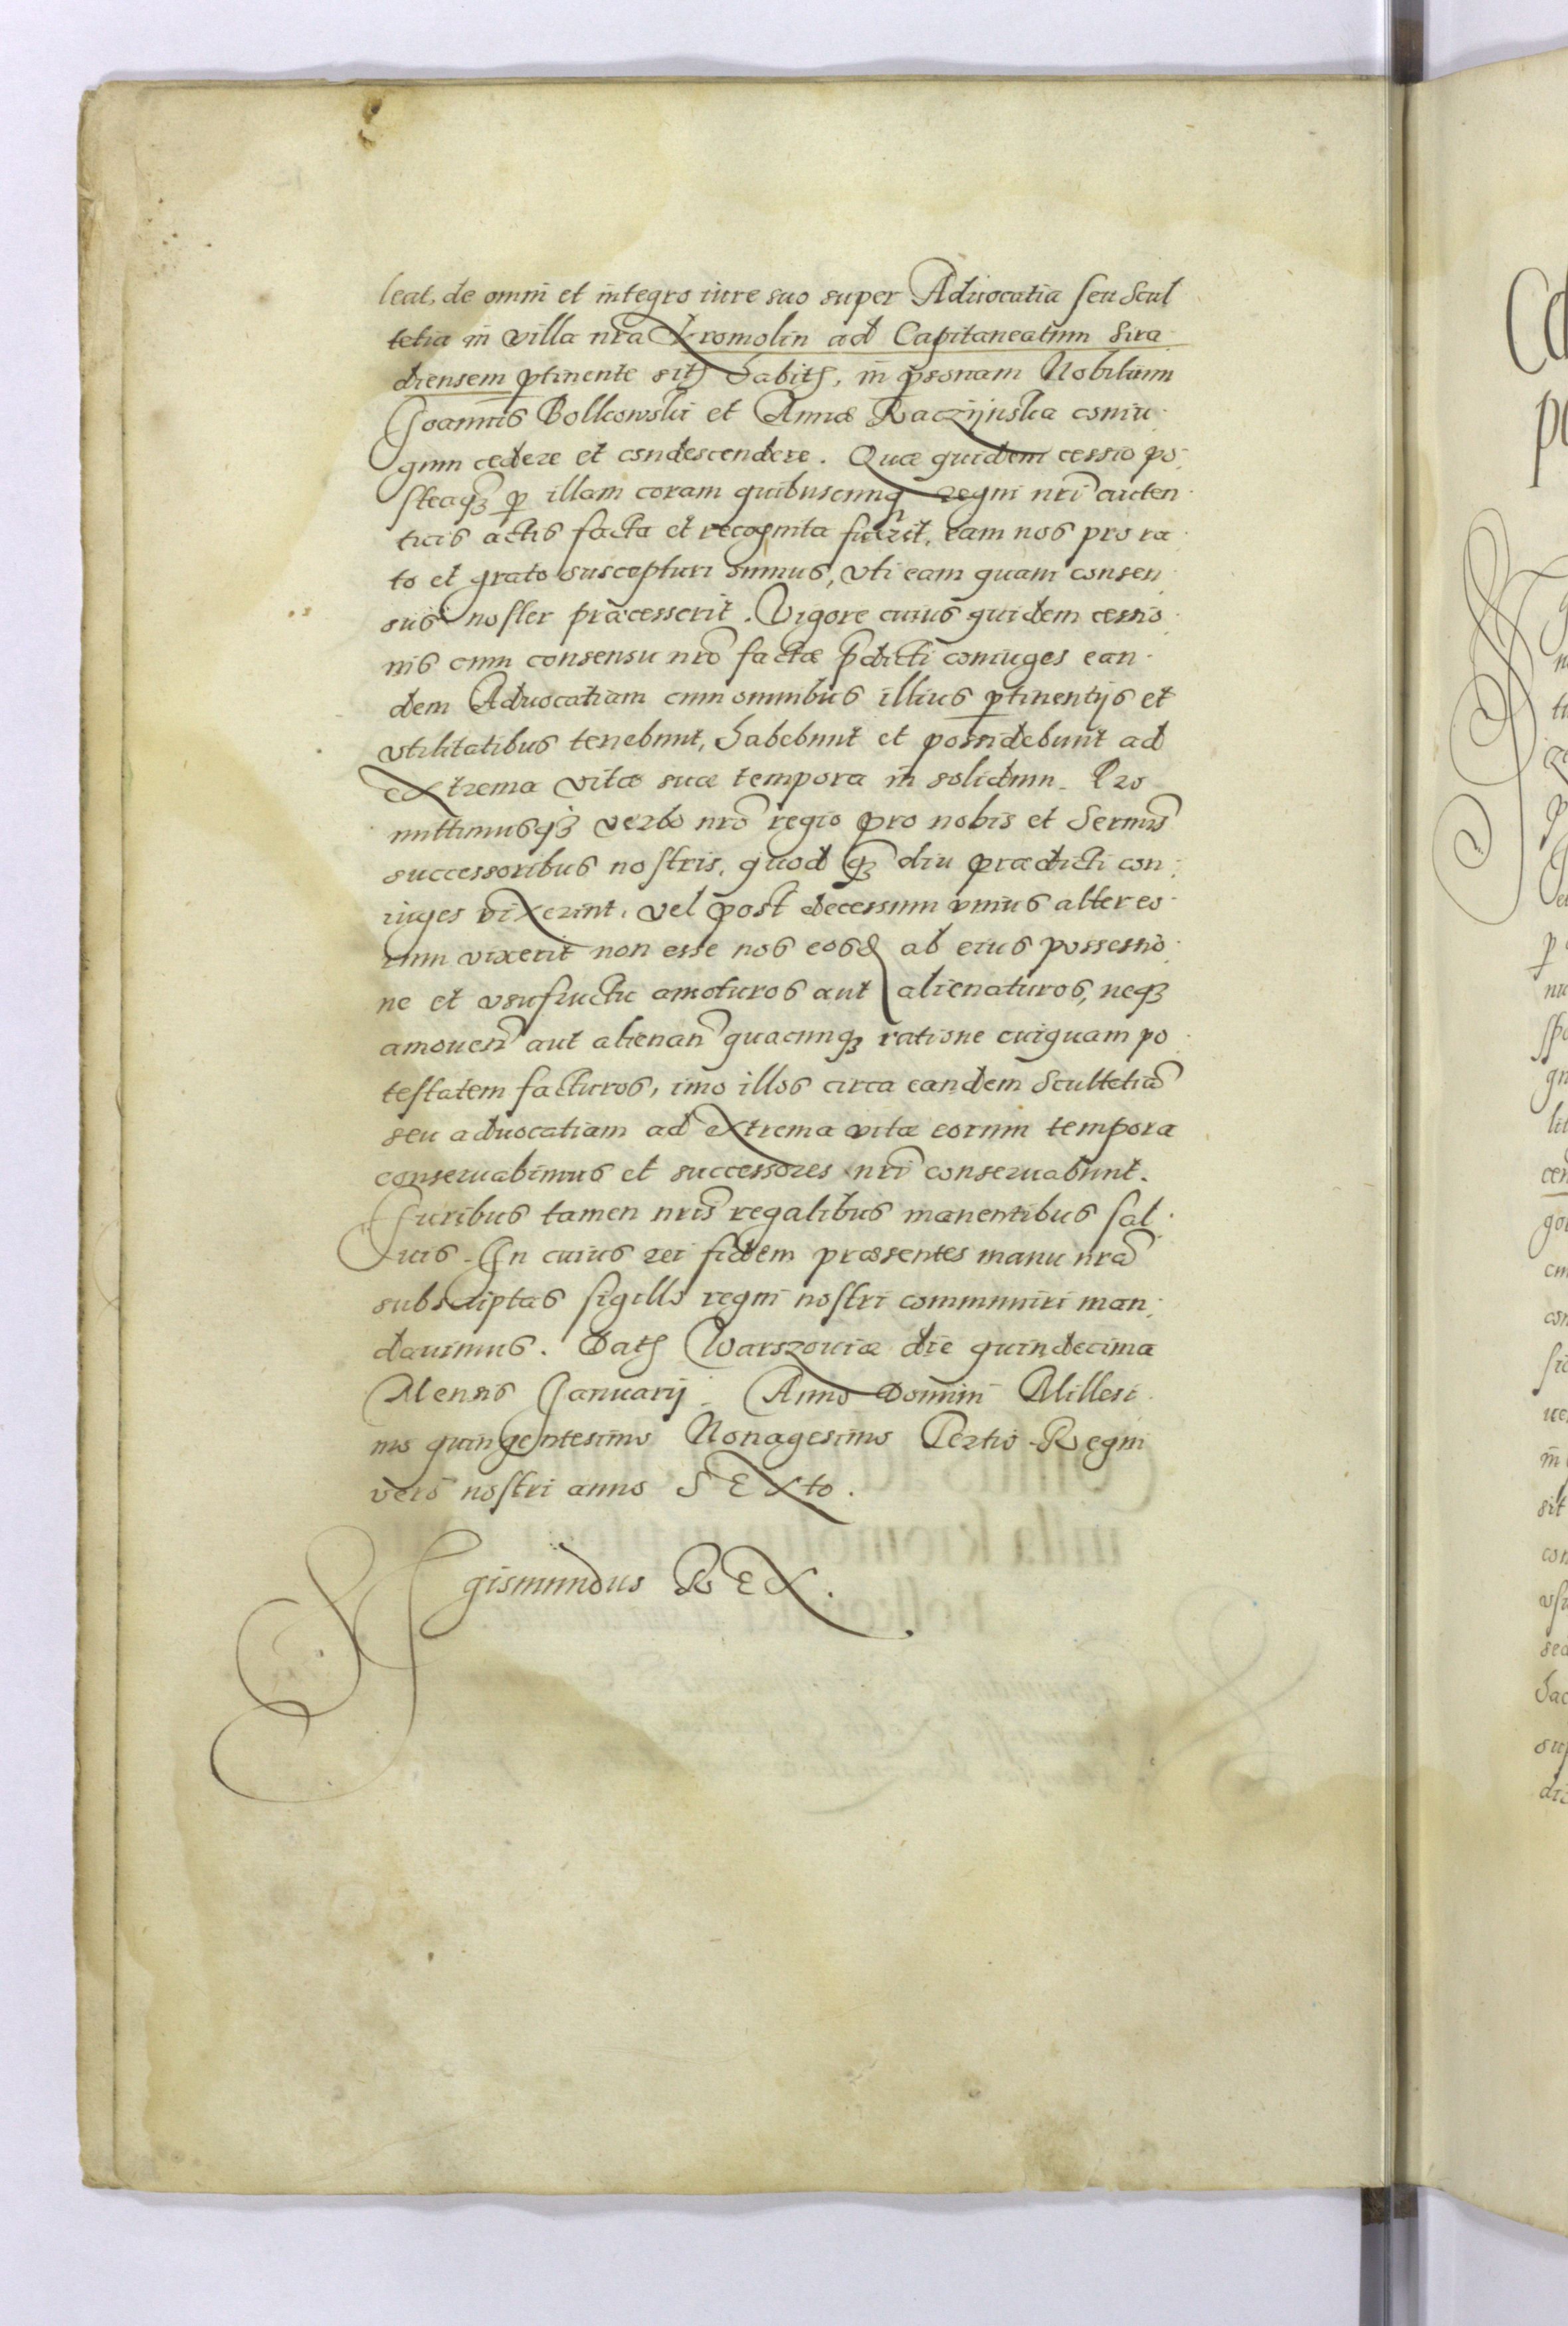 leat, de omni et integro iure suo super Aduocatia seu Scul
tetia in villa nrã Kromolin ad Capitaneatum Sira
diensem ptinente sitz habitz, in psonam Nobilium
Joannis Bolkowski et Annæ Raczÿnska coniu
gum cedere et condescendere. Quæ quidem cessio po
steaq₃ p illam coram quibuscunq₃ regni nrĩ auten
ticis actis facta et recognita fuerit, eam nos pro ra
to et grato suscepturi sumus, vti eam quam consen
sus noster præcesserit. Vigore cuius quidem cessio
nis cum consensu nrõ factæ pdicti coniuges ean
dem Aduocatiam cum omnibus illius ptinentijs et
vtilitatibus tenebunt, habebunt et possidebunt ad
extrema vitæ suæ tempora in solidum. Pro
mittimusq₃ verbo nrõ regio pro nobis et Sermis
successoribus nostris, quod q₃ diu prædicti con
iuges vixerint, vel post decessum vnius alter eo
rum vixerit non esse nos eosd ab eius possessio
ne et vsufructu amoturos aut alienaturos, neq₃
amouen aut alienan quacunq₃ ratione cuiquam po
testatem facturos, imo illos circa eandem Scultetiã
seu aduocatiam ad extrema vitæ eorum tempora
conseruabimus et successores nrĩ conseruabunt.
Juribus tamen nrĩs regalibus manentibus sal
uis. In cuius rei fidem præsentes manu nrã
subscriptas sigillo regni nostri communiri man
dauimus. Datz Warszouiæ die quindecima
Mensis Januarij. Anno Domini Millesi
mo quingentesimo Nonagesimo Tertio Regni
vero nostri anno SEXto.
Sigismundus REX.